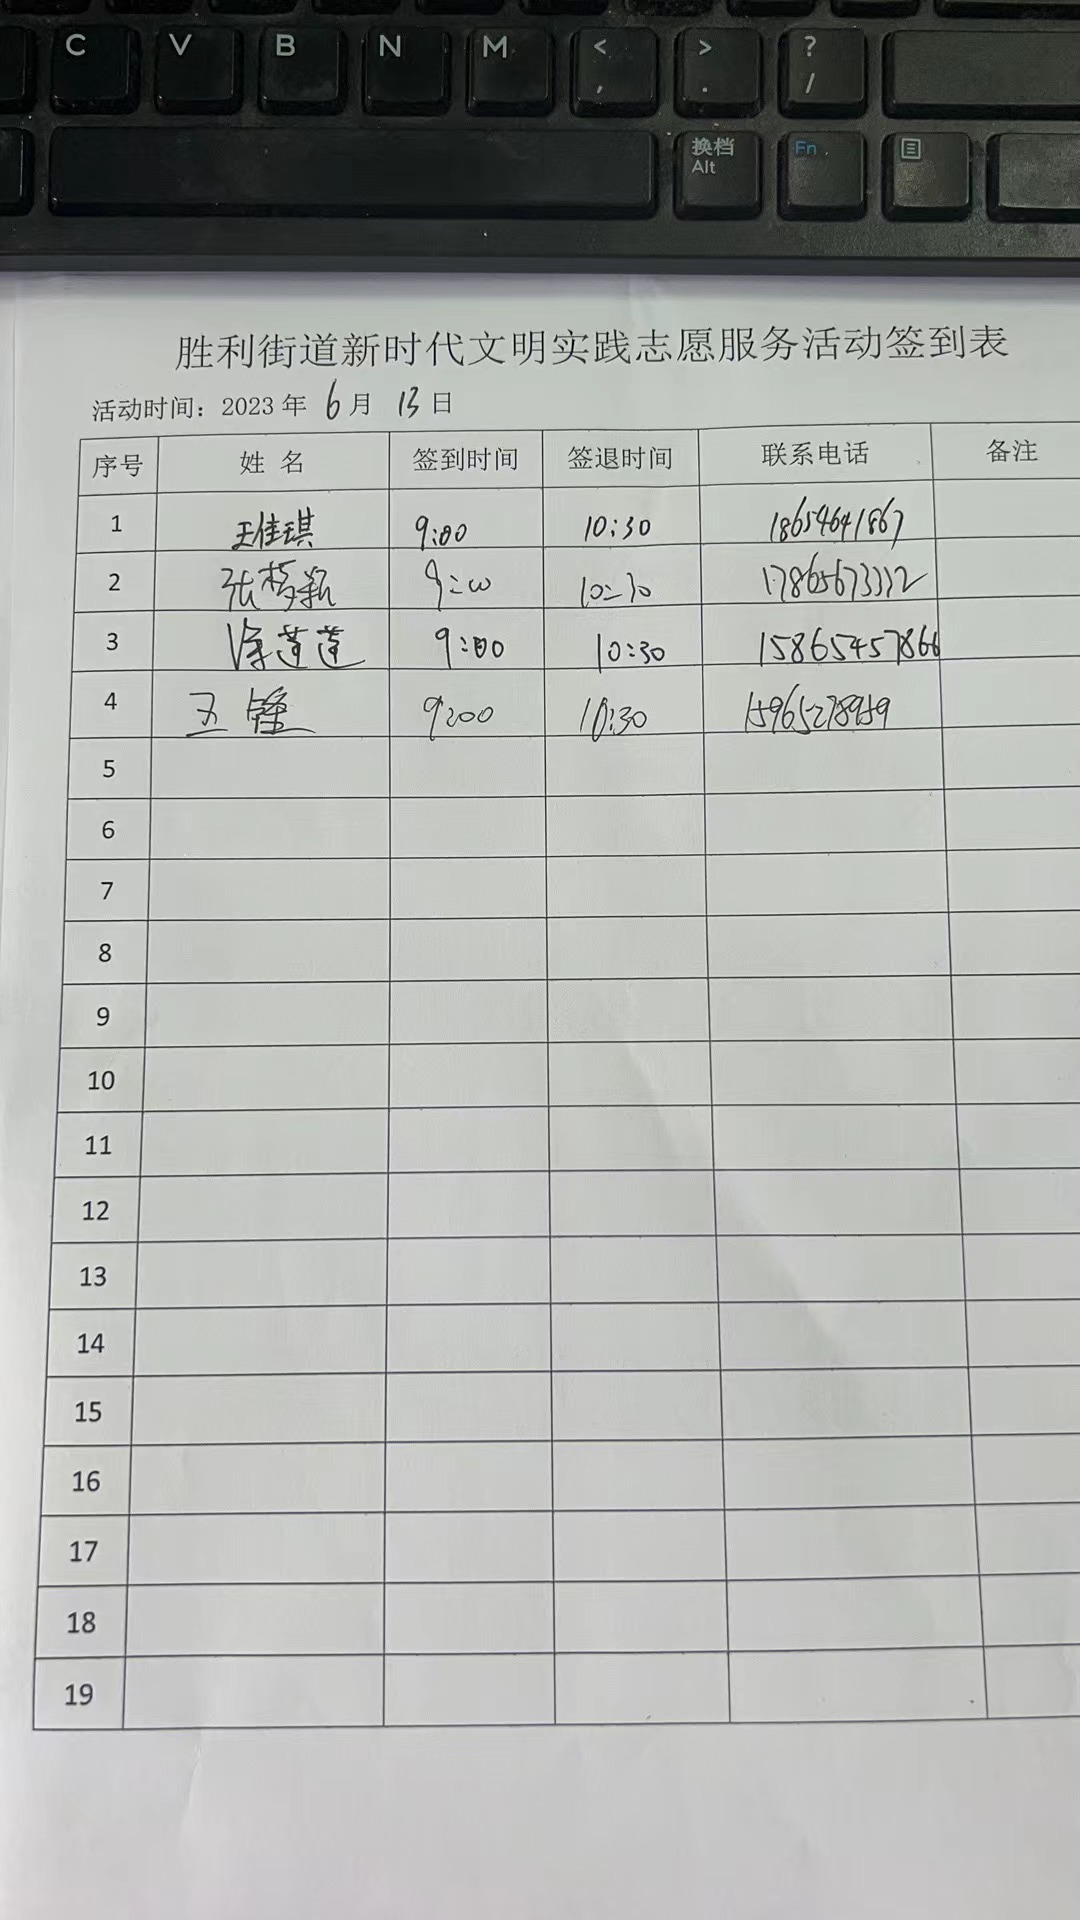 C V B N M < >  ?
, . /
换档 Fn
Alt
胜利街道新时代文明实践志愿服务活动签到表
活动时间：2023 年 6 月 13 日
序号 姓 名 签到时间 签退时间 联系电话 备注
1 王佳琪 9:00 10:30 18654641867
2 张梦颖 9:00 10:30 17865673312
3 徐莲莲 9:00 10:30 15865457866
4 王锋 9:00 10:30 15965278959
5
6
7
8
9
10
11
12
13
14
15
16
17
18
19